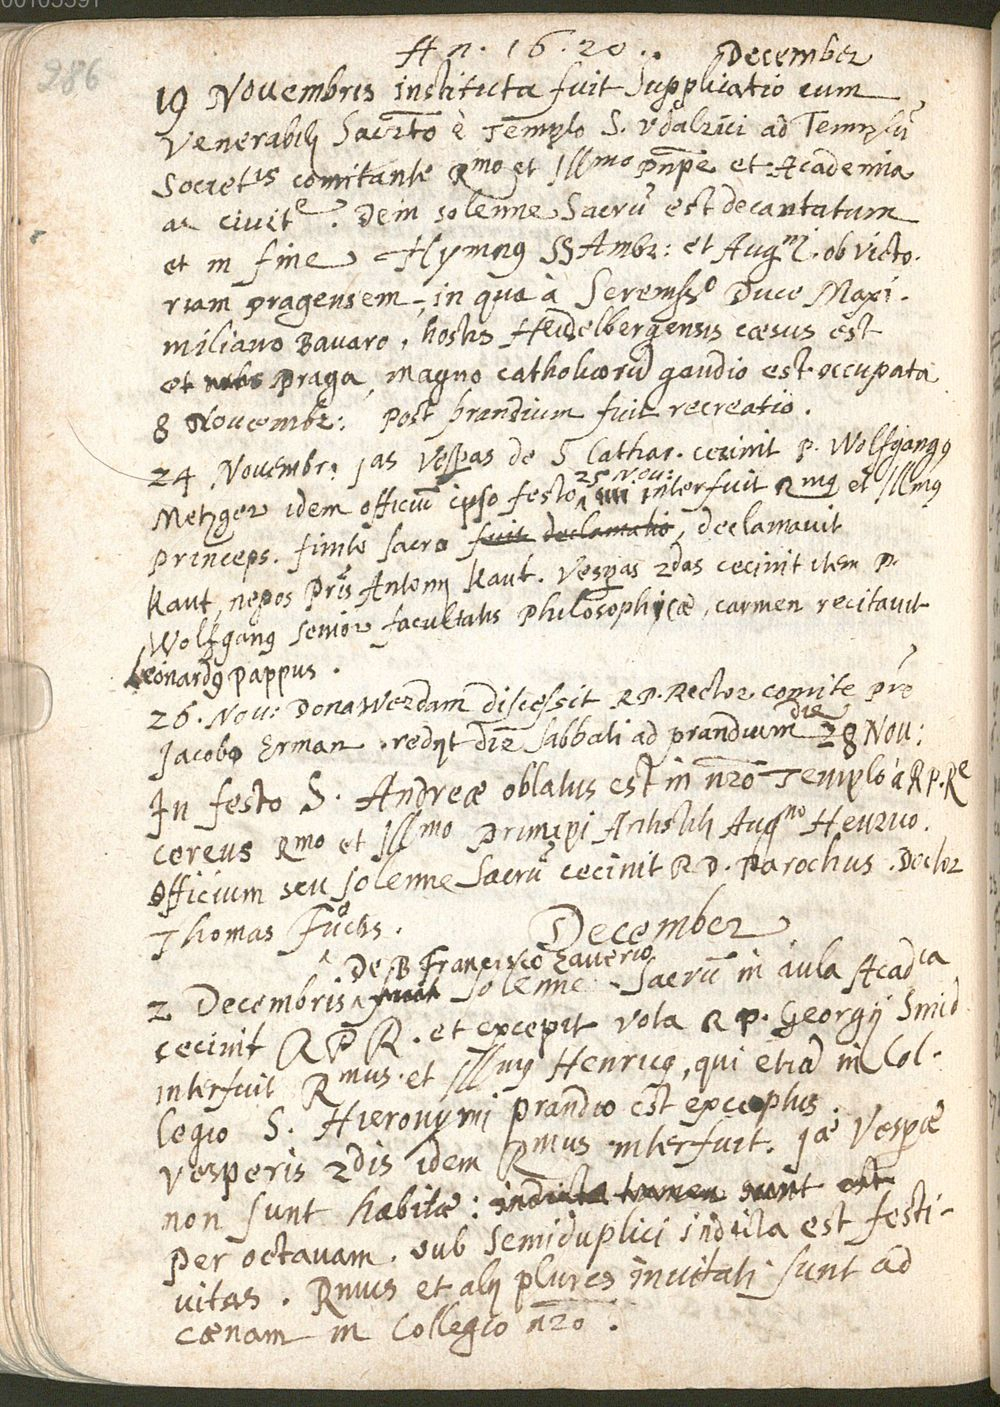 286
An. 16.20.. December
19 Novembris instituta fuit Supplicatio cum
Venerabilj Sacrto è Templo S. Vdalrici ad Templũ
Societis comitante Rmo et Illmo pnpe et Academia
ac civite. Dein solenne Sacrũ est decantatum
et in fine Hymnus SS Ambr: et Augni. ob victo-
riam pragensem, in qua à Serenisso Duce Maxi-
miliano Bavaro, hostis Heidelbergensis cæsus est
et urbs Praga, magno catholicorũ gaudio est occupata
8 Novembr: Post prandium fuit recreatio.
24 Novembr: 1as Vespas de S Cathar. cecinit P. Wolfgangus
Metzger idem officiũ ipso festo 25 Nov: interfuit Rmus et Illmus
Princeps. finito sacro fuit declamatio, declamauit
Kaut, nepos Pris Antonij Kaut. Vesperas 2das cecinit item P.
Wolfgang senior facultatis Philosophicæ, carmen recitauit
Leonardus Pappus.
26. Nou: DonaWerdam discessit R.P. Rector comite Pre
Jacobo Erman. redijt die Sabbati ad prandium die 28 Nou:
In festo S. Andreæ oblatus est in nro Templo à R.P. Re
cereus Rmo et Illmo Principi Antistiti Augno Henrico.
Officium seu solenne Sacrũ cecinit R D. Parochus. Doctor
Thomas Fuchs.
December
De B Francisco Xauerio
2 Decembris fuit solenne Sacrũ in aula Acadica
cecinit R P R. et excepit vota R P. Georgij Smid
interfuit Rmus. et Illmus Henricus, qui etiã in Col-
legio S. Hieronymi prandio est exceptus.
Vesperis 2dis idem Rmus interfuit. 1æ Vesperæ
non sunt habitæ: indicta tamen sunt est
per octauam. sub semiduplici indicta est festi-
uitas. Rmus et alij plures inuitati sunt ad
cænam in Collegio nro.